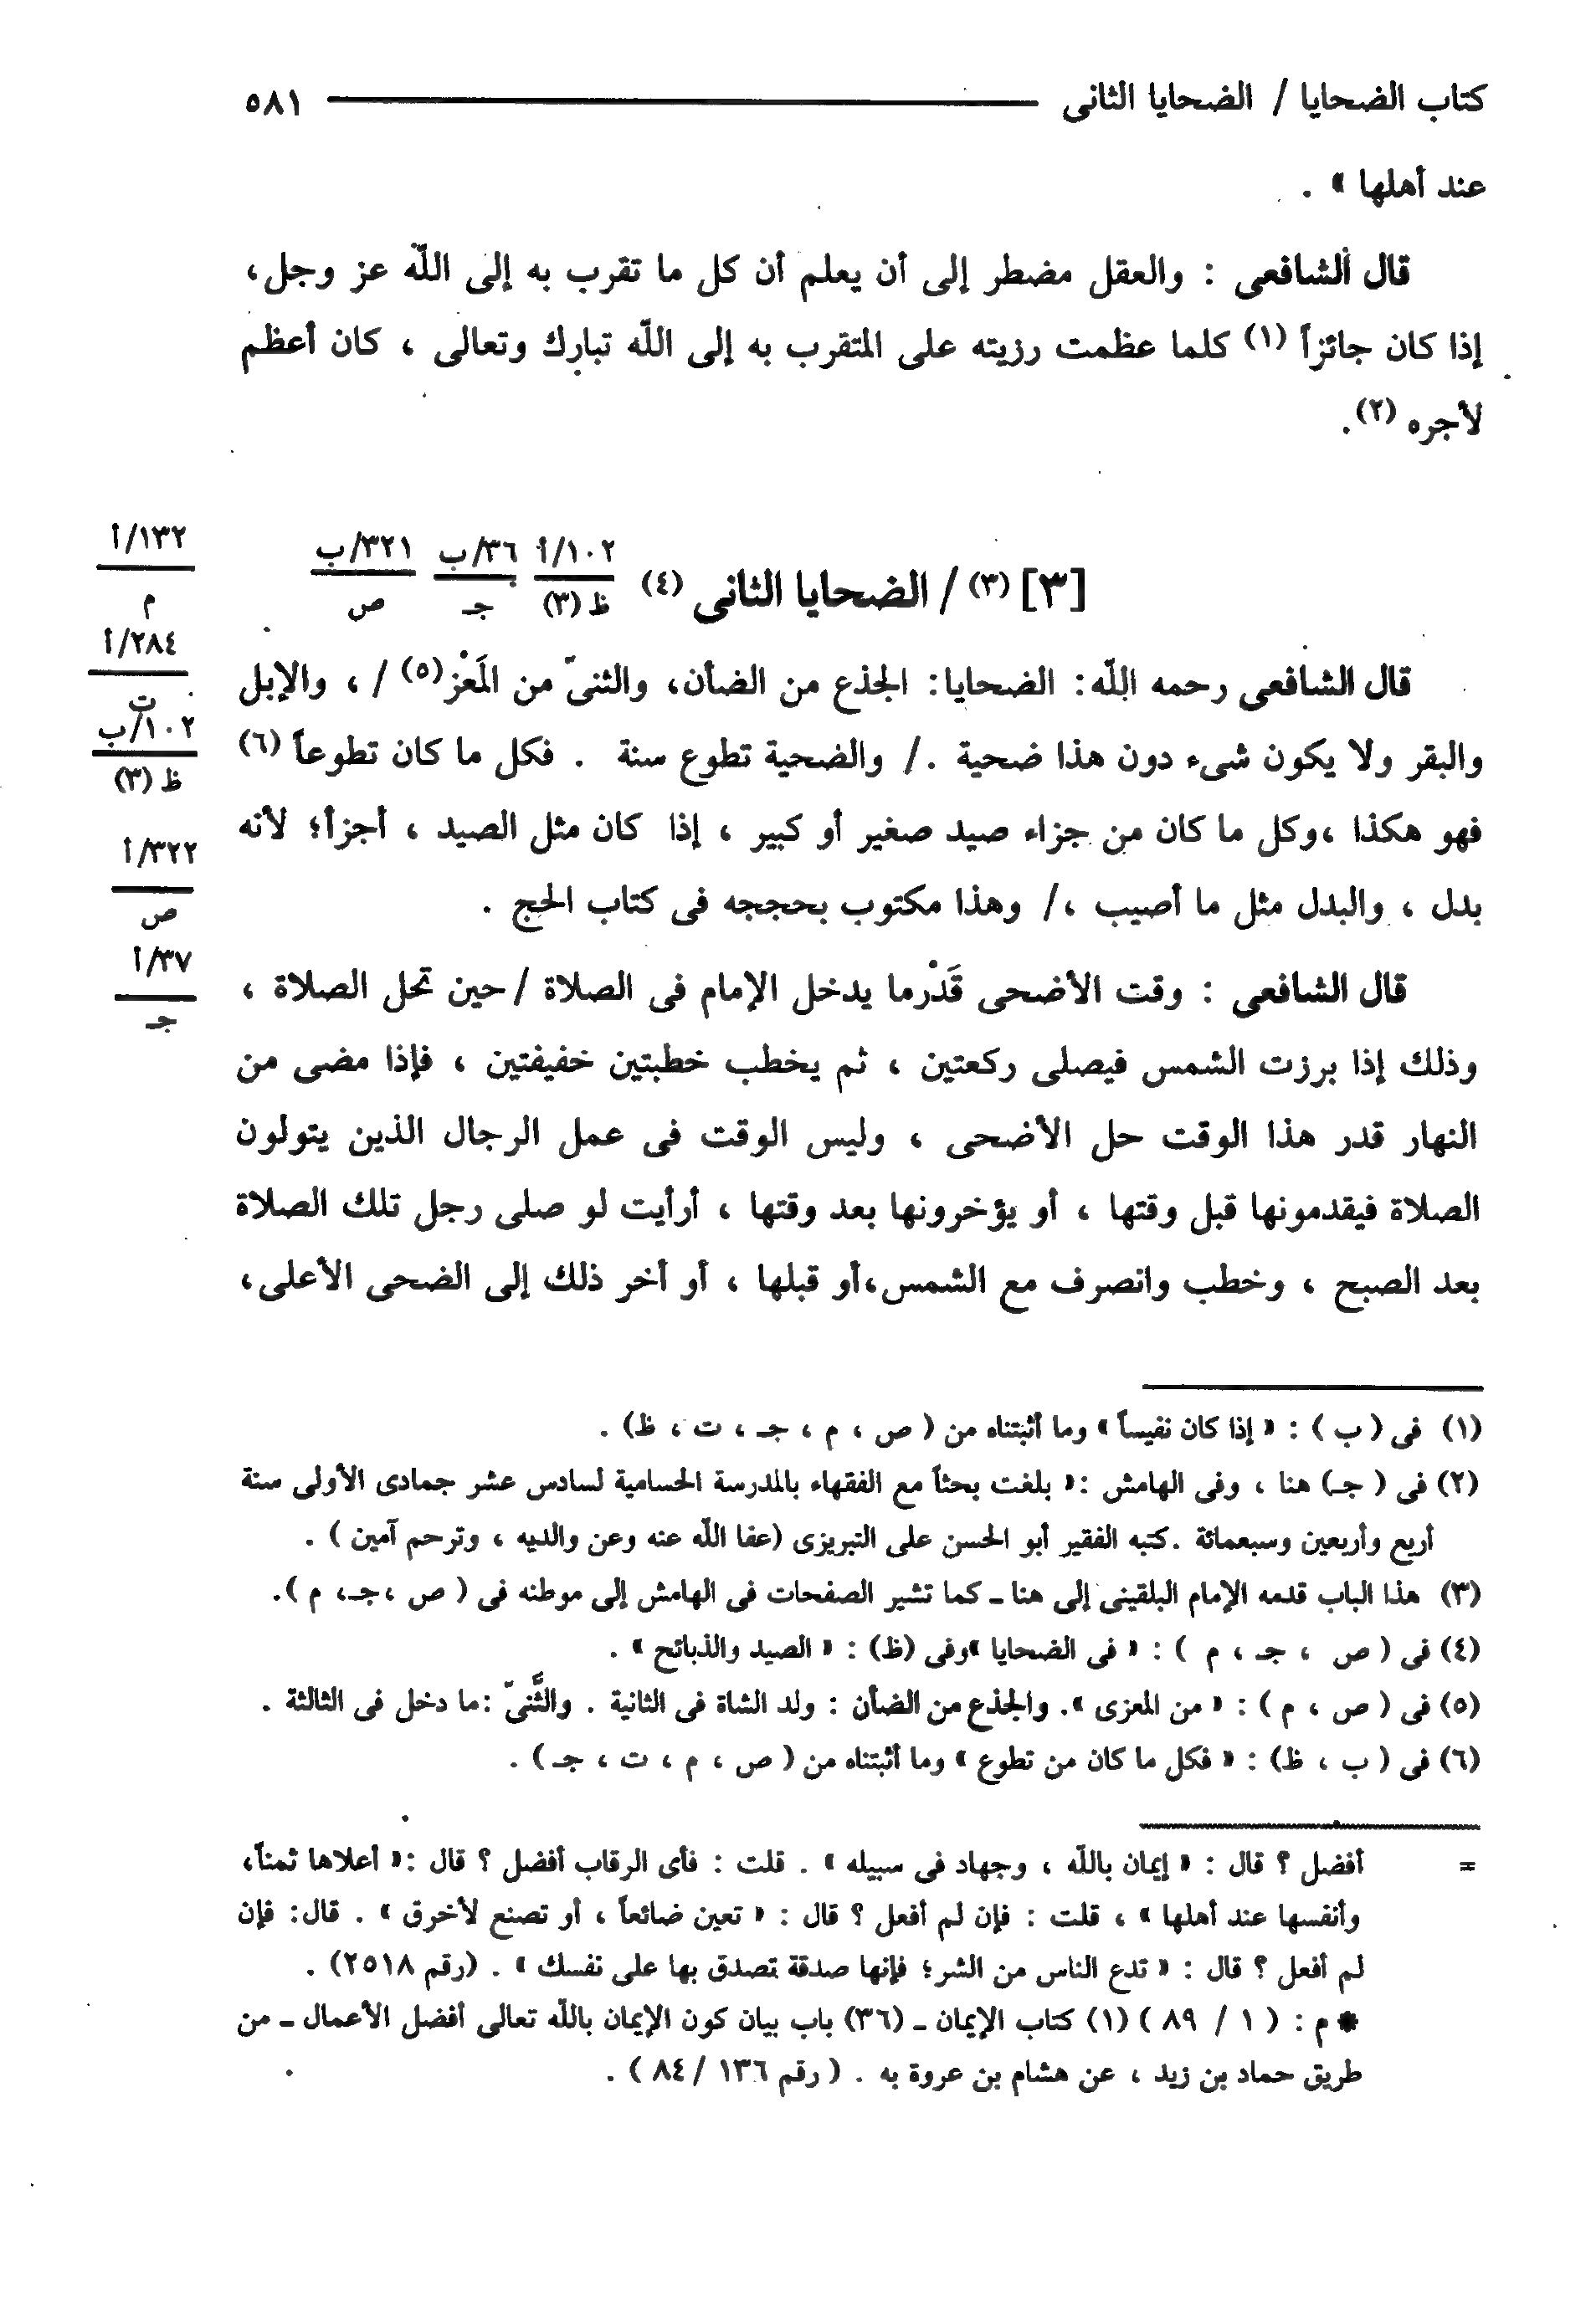 كتاب الضحايا / الضحايا الثانى ٥٨١
عند أهلها » .
قال الشافعى : والعقل مضطر إلى أن يعلم أن كل ما تقرب به إلى اللّه عز وجل،
إذا كان جائزاً (١) كلما عظمت رزيته على المتقرب به إلى اللّه تبارك وتعالى ، كان أعظم
لأجره (٢).
[٣] (٣) / الضحايا الثانى (٤)
١٠٢/أ
ظ (٣)
٣٦/ب
جـ
٣٢١/ب
ص
١٣٢/أ
م
٢٨٤/أ
ت
قال الشافعى رحمه اللّه: الضحايا: الجذع من الضأن، والثنىّ من المَعْز(٥) / ، والإبل
والبقر ولا يكون شىء دون هذا ضحية ./ والضحية تطوع سنة . فكل ما كان تطوعاً (٦)
١٠٢/ب
ظ (٣)
فهو هكذا ،وكل ما كان من جزاء صيد صغير أو كبير ، إذا كان مثل الصيد ، أجزأ؛ لأنه
بدل ، والبدل مثل ما أصيب ،/ وهذا مكتوب بحججه فى كتاب الحج .
٣٢٢/أ
ص
قال الشافعى : وقت الأضحى قَدْرما يدخل الإمام فى الصلاة /حين تحل الصلاة ،
٣٧/أ
جـ
وذلك إذا برزت الشمس فيصلى ركعتين ، ثم يخطب خطبتين خفيفتين ، فإذا مضى من
النهار قدر هذا الوقت حل الأضحى ، وليس الوقت فى عمل الرجال الذين يتولون
الصلاة فيقدمونها قبل وقتها ، أو يؤخرونها بعد وقتها ، أرأيت لو صلى رجل تلك الصلاة
بعد الصبح ، وخطب وانصرف مع الشمس،أو قبلها ، أو أخر ذلك إلى الضحى الأعلى،
(١) فى ( ب ) : « إذا كان نفيساً » وما أثبتناه من ( ص ، م ، جـ ، ت ، ظ) .
(٢) فى ( جـ) هنا ، وفى الهامش :« بلغت بحثاً مع الفقهاء بالمدرسة الحسامية لسادس عشر جمادى الأولى سنة
أربع وأربعين وسبعمائة .كتبه الفقير أبو الحسن على التبريزى (عفا اللّه عنه وعن والديه ، وترحم آمين ) .
(٣) هذا الباب قدمه الإمام البلقينى إلى هنا ـ كما تشير الصفحات فى الهامش إلى موطنه فى ( ص ،جـ، م ).
(٤) فى ( ص ، جـ ، م ) : « فى الضحايا »وفى (ظ) : « الصيد والذبائح » .
(٥) فى ( ص ، م ) : « من المعزى ». والجذع من الضأن : ولد الشاة فى الثانية . والثَّنىّ :ما دخل فى الثالثة .
(٦) فى ( ب ، ظ) : « فكل ما كان من تطوع » وما أثبتناه من ( ص ، م ، ت ، جـ ) .
= أفضل ؟ قال : « إيمان باللّه ، وجهاد فى سبيله » . قلت : فأى الرقاب أفضل ؟ قال :« أعلاها ثمناً،
وأنفسها عند أهلها » ، قلت : فإن لم أفعل ؟ قال : « تعين ضائعاً ، أو تصنع لأخرق » . قال: فإن
لم أفعل ؟ قال : « تدع الناس من الشر؛ فإنها صدقة تصدق بها على نفسك » . (رقم ٢٥١٨) .
✽ م : ( ١ / ٨٩ ) (١) كتاب الإيمان ـ (٣٦) باب بيان كون الإيمان باللّه تعالى أفضل الأعمال ـ من
طريق حماد بن زيد ، عن هشام بن عروة به . ( رقم ١٣٦ / ٨٤ ) .